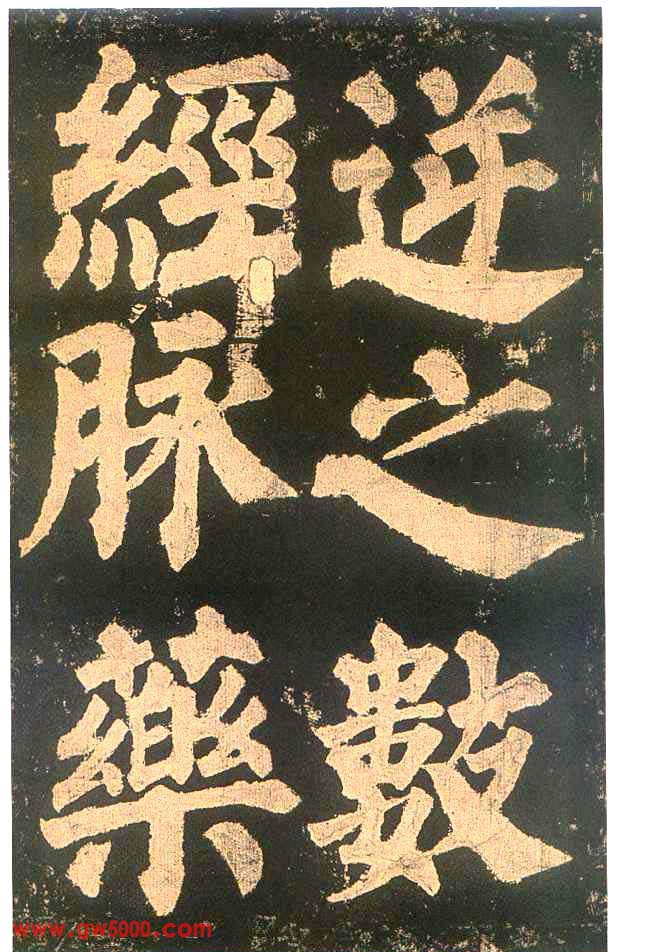 逆之數
經脉藥
www.gw5000.com